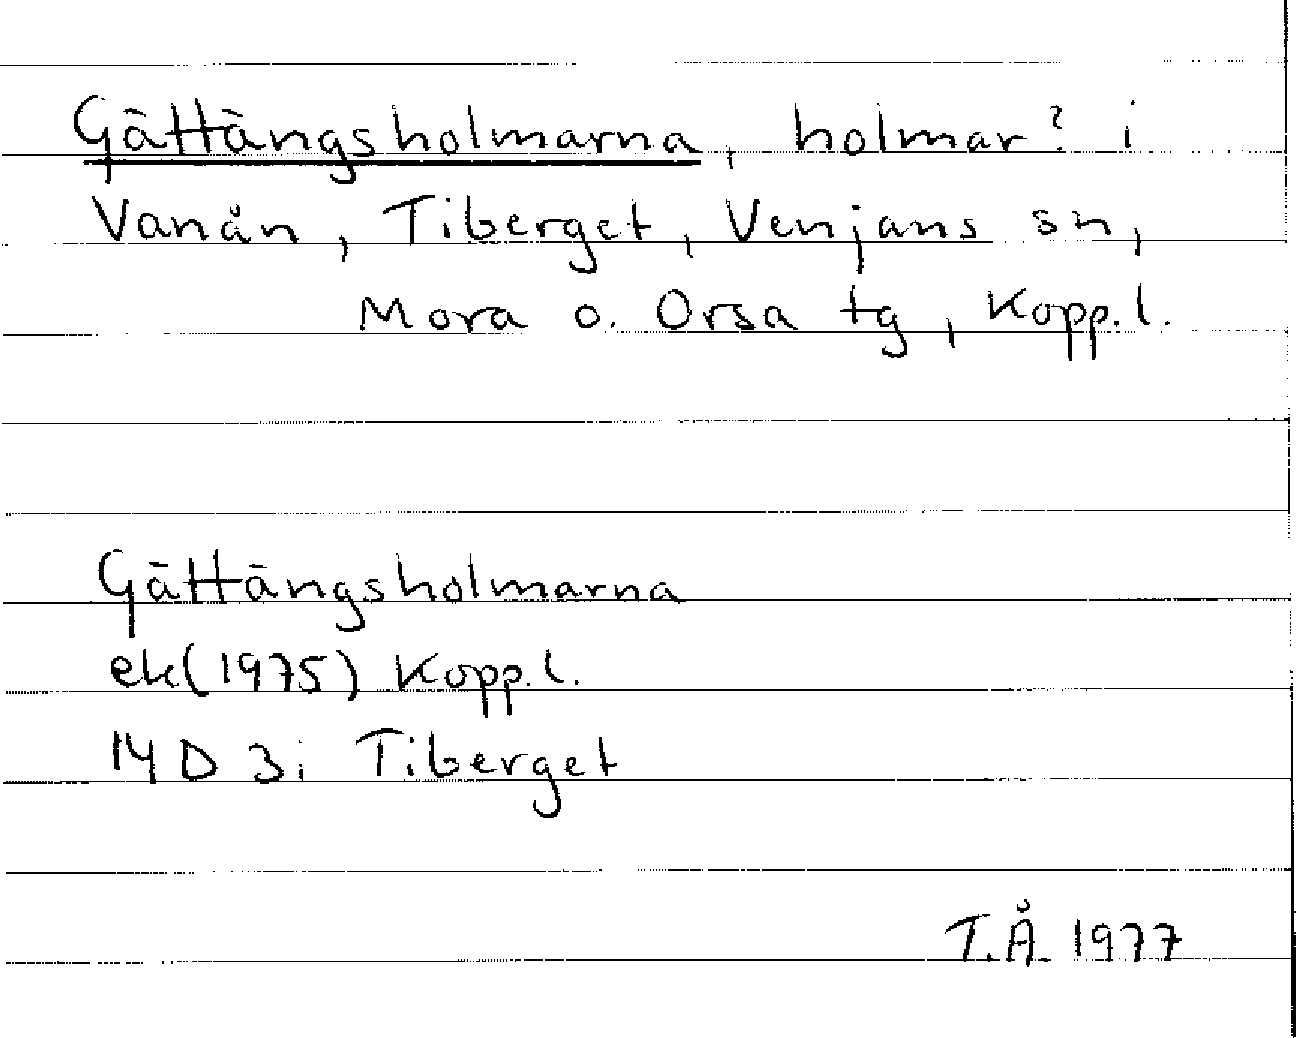 Gättängsholmarna, holmar? i
Vanån, Tiberget, Venjans sn,
Mora o. Orsa tg, Kopp.l.
Gättängsholmarna
ek(1975) Kopp.l.
14 D 3i Tiberget
T.Å. 1977